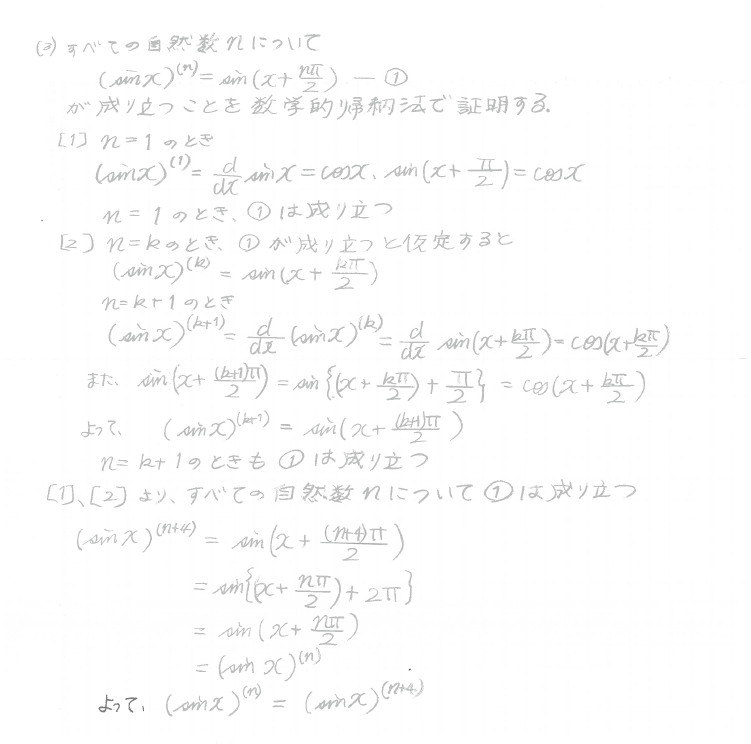 (3) すべての自然数nについて
(sinx)^(n) = sin(x + nπ/2) — ①
が成り立つことを数学的帰納法で証明する.
[1] n=1のとき
(sinx)^(1) = d/dx sinx = cosx、sin(x + π/2) = cosx
n=1のとき、①は成り立つ
[2] n=kのとき、①が成り立つと仮定すると
(sinx)^(k) = sin(x + kπ/2)
n=k+1のとき
(sinx)^(k+1) = d/dx (sinx)^(k) = d/dx sin(x + kπ/2) = cos(x + kπ/2)
また、sin(x + (k+1)π/2) = sin{(x + kπ/2) + π/2} = cos(x + kπ/2)
よって、(sinx)^(k+1) = sin(x + (k+1)π/2)
n=k+1のときも①は成り立つ
[1]、[2]より、すべての自然数nについて①は成り立つ
(sinx)^(n+4) = sin(x + (n+4)π/2)
= sin{(x + nπ/2) + 2π}
= sin(x + nπ/2)
= (sinx)^(n)
よって、(sinx)^(n) = (sinx)^(n+4)